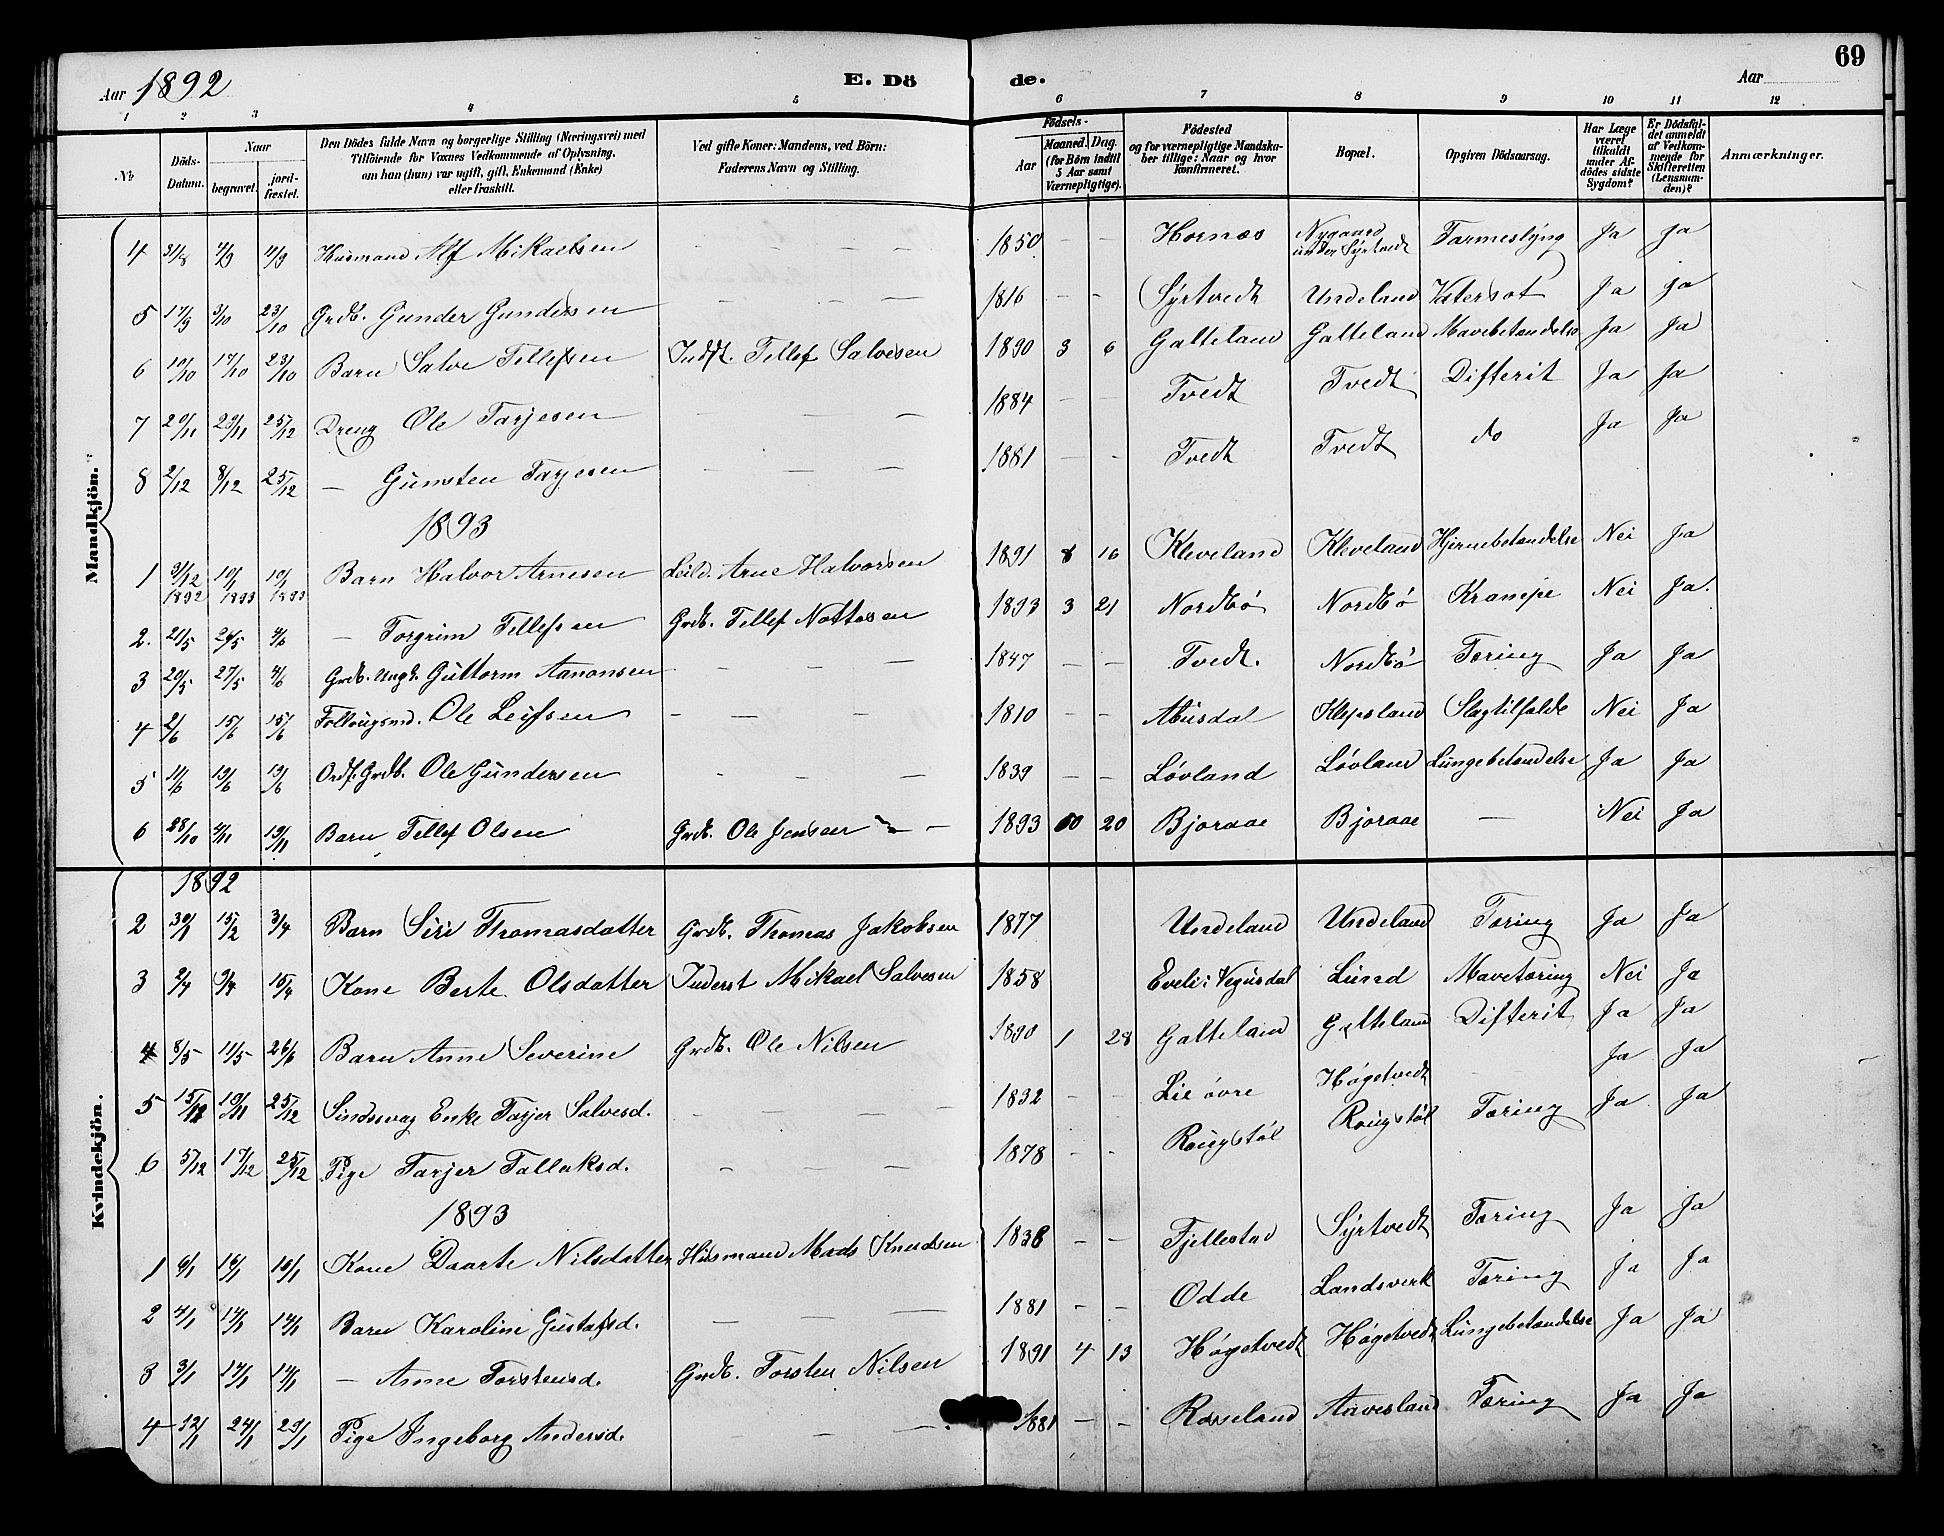 69
Aar 1892 E. Dö de. Aar
1 2 3 4 5 6 7 8 9 10 11 12
No. Döds-Datum. Naar begravet. jord-fæstet. Den Dödes fulde Navn og borgerlige Stilling (Næringsvei) med Tilföiende for Voxnes Vedkommende af Oplysning, om han (hun) var ugift, gift, Enkemand (Enke) eller fraskilt. Ved gifte Koner: Mandens, ved Börn: Faderens Navn og Stilling. Födsels- Aar Maaned. Dag. (for Börn indtil 5 Aar samt Værnepligtige). Födested og for værnepligtige Mandskaber tillige: Naar og hvor konfirmeret. Bopæl. Opgiven Dödsaarsag. Har Læge været tilkaldt under Afdödes sidste Sygdom? Er Dödsfaldet anmeldt af Vedkommende for Skifteretten (Lensmanden)? Anmærkninger.
Mandkjön.
4 31/8 4/9 11/9 Husmand Alf Mikaelsen 1850 - - Hornæs Nygaard under Syrtvedt Tarmeslyng Ja Ja
5 17/9 3/10 23/10 Grdb. Gunder Gundersen — — — 1816 - - Syrtvedt Undeland Vatersot Ja Ja
6 10/10 17/10 23/10 Barn Salve Tellefsen Indst. Tellef Salvesen 1890 3 6 Galteland Galteland Mavebetændelse Ja Ja
7 20/11 29/11 25/12 Dreng Ole Tarjesen — — — 1884 - - Tvedt Tvedt Difterit Ja Ja
8 2/12 8/12 25/12 — Gunsten Tarjesen — — — 1881 - - Tvedt Tvedt do Ja Ja
1893
1 31/12 1892 10/1 1893 10/1 1893 Barn Halvor Arnesen Leild. Arne Halvorsen 1891 8 16 Kleveland Kleveland Hjernebetændelse Nei Ja
2. 21/5 29/5 4/6 — Torgrim Tellefsen Grdb. Tellef Nottosen 1893 3 21 Nordbø Nordbø Krampe Nei Ja.
3 20/5 27/5 4/6 Grdb. Ungk. Guttorm Aanonsen — — — 1847 — — Tvedt. Nordbø Tæring Ja Ja
4 2/6 15/6 15/6 Follougsmd. Ole Leifsen — — — 1810 - - Abusdal Klepsland Slagtilfælde Nei Ja
5 11/6 19/6 19/6 Ordf. Grdb. Ole Gundersen — — — 1839 — — Løvland Løvland Lungebetændelse Ja Ja
6 28/10 4/11 19/11 Barn Tellef Olsen Grdb. Ole Jensen — — 1893 00 20 Bjoraae Bjoraae — Nei Ja
Kvindekjön.
1892
2 30/1 15/2 3/4 Barn Siri Thomasdatter Grdb. Thomas Jakobsen 1877 Undeland Undeland Tæring Ja Ja
3 2/4 9/4 10/4 Kone Berte Olsdatter Inderst Mikael Salvesen 1858 Eveli i Vegusdal Lund Mavetæring Nei Ja
4 8/5 11/5 26/6 Barn Anne Severine Grdb. Ole Nilsen 1890 1 28 Galteland Galteland Difterit Ja Ja
5 15/12 19/11 25/12 Sindssvag Enke Tarjer Salvesd. — — — 1832 - - Lie øvre Høgetvedt Ja Ja
6 5/12 17/12 25/12 Pige Tarjer Talleksd. — — — 1878 - - Rougstøl Rougstøl Tæring Ja Ja
1893
1 6/1 14/1 15/1 Kone Daarte Nilsdatter Husmand Mads Knudsen 1838 - - Fjellestad Syrtvedt Tæring Ja Ja
2 4/1 14/1 14/1 Barn Karolin Gustafsd. — — — 1881 - - Odde Landsverk Tæring Ja Ja
3 3/1 14/1 14/1 — Anne Torstensd. Grdb. Torsten Nilsen 1891 4 13 Høgetvedt Høgetvedt Lungebetændelse Ja Ja
4 12/1 24/1 29/1 Pige Ingeborg Andersd. — — — 1881 - - Røiseland Aavesland Tæring Ja Ja